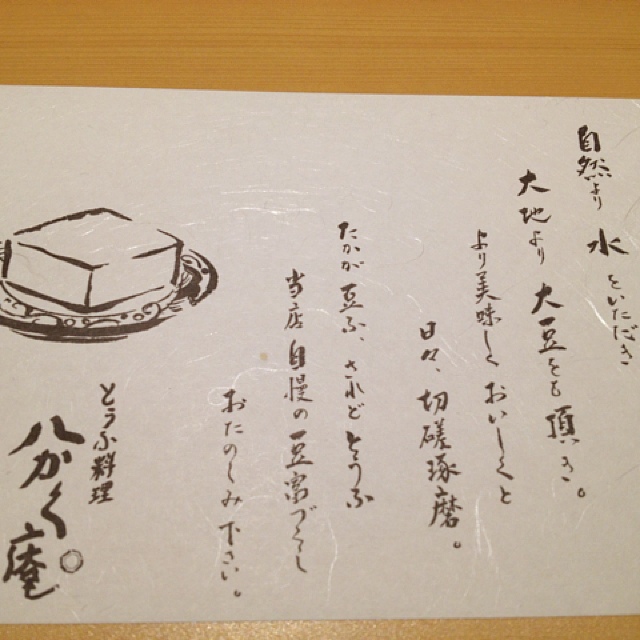 自然より水をいただき
大地より大豆をも頂き。
より美味しくおいしくと
日々、切磋琢磨。
たかが豆ふ、されどとうふ
当店自慢の豆富づくし
おたのしみ下さい。
とうふ料理
八かく庵